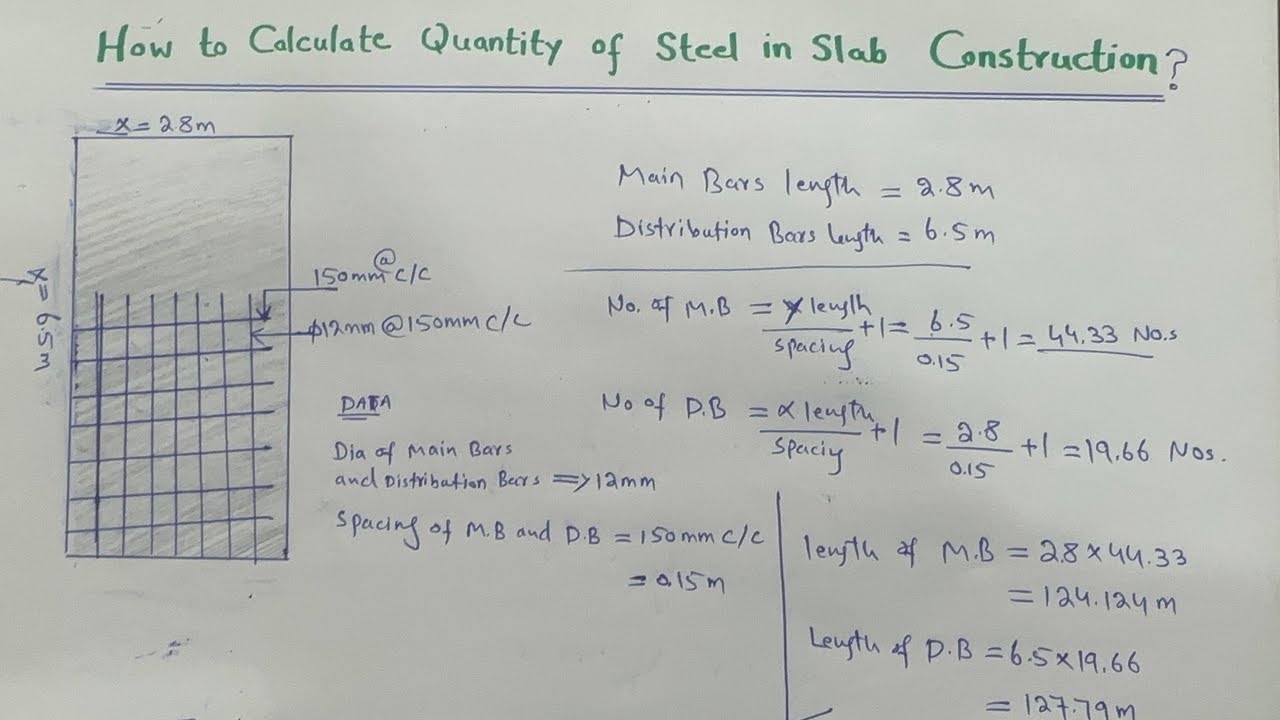 How to Calculate Quantity of Steel in Slab Construction?
x = 28m
x = 6.5m
@
150mm c/c
ϕ12mm@150mm c/c
DATA
Dia of Main Bars
and Distribution Bars => 12mm
Spacing of M.B and D.B = 150mm c/c
= 0.15m
Main Bars length = 2.8m
Distribution Bars length = 6.5m
No. of M.B = y length / spacing +1 = 6.5 / 0.15 +1 = 44.33 No.s
No of D.B = x length / Spaciy +1 = 2.8 / 0.15 +1 = 19.66 Nos.
length of M.B = 2.8 x 44.33
= 124.124m
Length of D.B = 6.5 x 19.66
= 127.79m